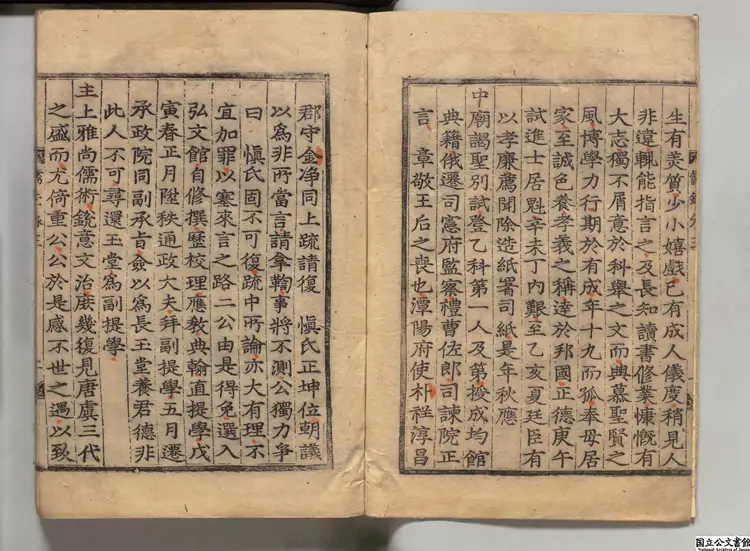 生有美質少小嬉戲已有成人儀度稍見人
非違輒能指言之及長知讀書修業慷慨有
大志獨不屑意於科擧之文而典慕聖賢之
風博學力行期於有成年十九而孤奉母居
家至誠色養孝義之稱達於邦國正德庚午
試進士居魁辛未丁內艱至乙亥夏廷臣有
以孝廉薦聞除造紙署司紙是年秋應
中廟謁聖別試登乙科第一人及第授成均館
典籍俄遷司憲府監察禮曹佐郎司諫院正
言 章敬王后之喪也潭陽府使朴祥淳昌
郡守金净同上疏請復 愼氏正坤位朝議
以爲非所當言請拿鞫事將不測公獨力爭
曰 愼氏固不可復疏中所論亦大有理不
宜加罪以塞來言之路二公由是得免選入
弘文館自修撰歷校理應敎典翰直提學戊
寅春正月陞秩通政大夫拜副提學五月遷
承政院同副承旨僉以爲長玉堂養君德非
此人不可尋還玉堂爲副提學
主上雅尙儒術銳意文治庶幾復見唐虞三代
之盛而尤倚重公公於是感不世之遇以致
国立公文書館
National Archives of Japan